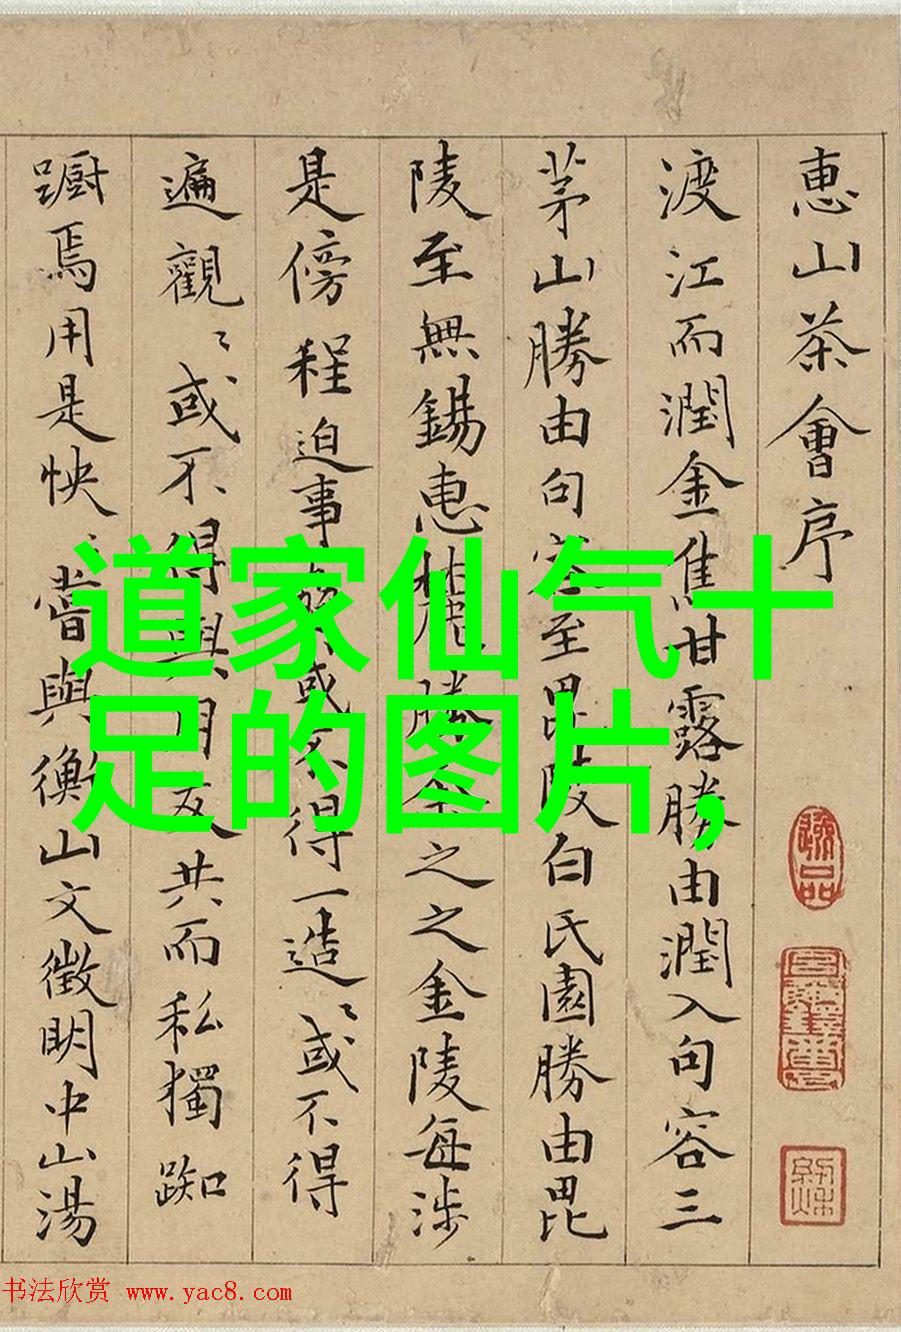 惠山茶會序
渡江而潤金焦甘露勝由潤入句容三
茅山勝由句容至毘陵白氏園勝由毘
陵至無錫惠麓勝余之之金陵每涉
是傍程迫事或不得一造〻或不得
遍觀〻或不得與朋友共而私獨踟
躕焉用是怏〻嘗與衡山文徵明中山湯
道家仙气十
足的图片,
书法欣赏 www.yac8.com